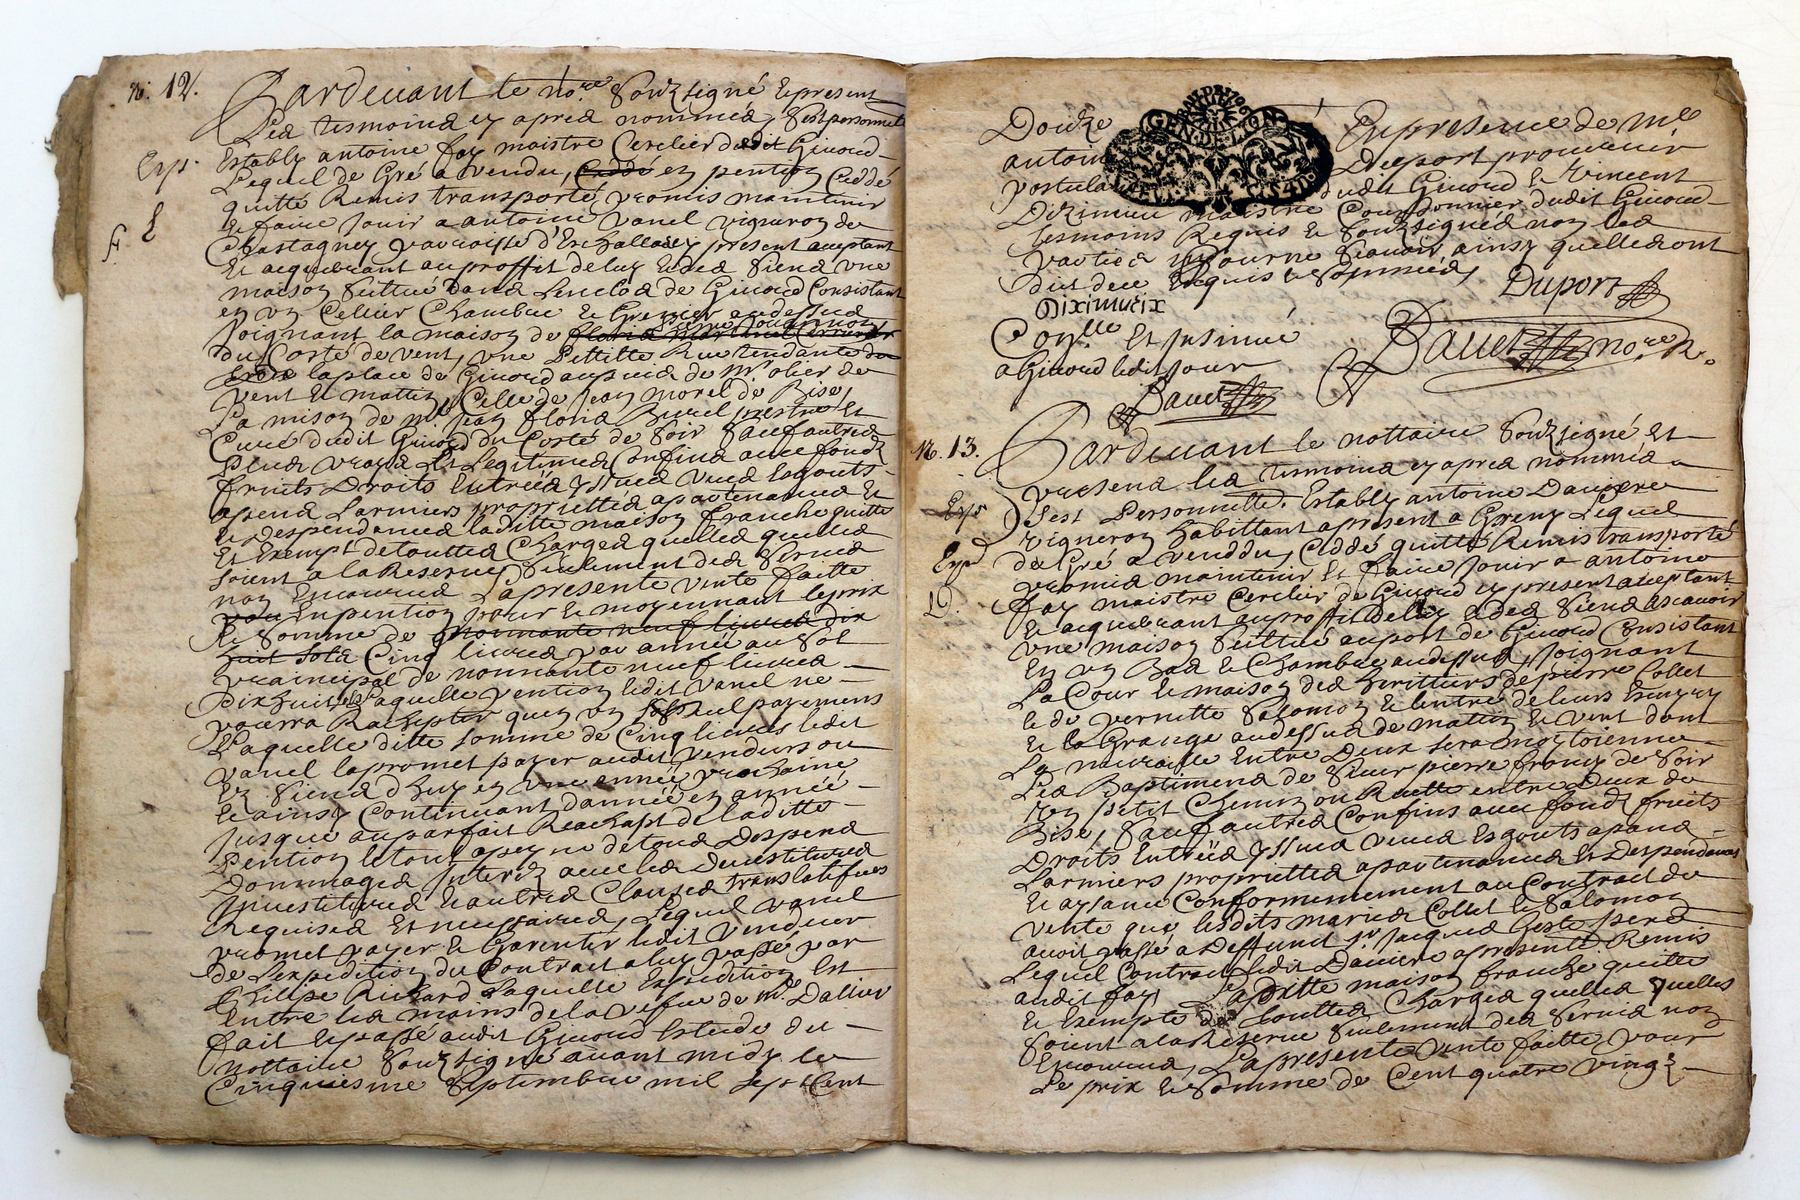 n°. 12.
Pardevant le no.re Soubsigné et present
Les tesmoins cy apres nommés, S'est personnel.
Exp.
Estably antoine fay maistre Cerclier dudit Givord
Lequel de Gré a vendu, Ceddé en pention Ceddé
quitté Remis transporté promis maintenir
et faire Jouir a antoine vanel vigneron de
Chastagney parroisse d'Eschallas, present aceptant
et acquerant au proffit de luy et des Siens une
maison Scittué dans Lenclos de Givord Consistant
en un Cellier Chambre et Grenier au dessus
Joignant la maison de
du Costé de vent, une Pettitte Rue tendante
la place de Givord au puis de Mr olier de
vent et mattin, Celle de Jean morel de Bise,
La mison de Mre Jean floris prestre et
Curé dudit Givord du Costé de Soir Sauf autres
Plus vrays et Legitimes Confins avec fonds
fruits Droits Entrées yssues vues Esgouts
aspens Larmiers propriettés apartenances et
et despendances laditte maison franche quitte
et Exempt de touttes Charges quelles quelles
soient a la Reserve Seulement des Servis
non Encourus, La presente vente faitte
en pention pour et moyennant le prix
et Somme de nonnante neuf livres dix
huit sols Cinq livres par année au Sol
principal de nonnante neuf livres
Dix huit sols Laquelle pention ledit vanel ne
pourra Rachepter quen un Seul payement
Laquelle ditte somme de Cinq livres ledit
vanel la promet payer audit vendeur ou
es Siens d'huy en une année prochaine
et ainsy Continuant d'année en année
Jusque au parfait Reachapt de laditte
Pention le tout a peyne de tous Despens
Dommages Interez avec les Devestitures
Investitures et autres Clauses translatifves
Requises et necessaires, Lequel vanel
promet payer et Garentir ledit vendeur
de L'expedition du Contract a luy passé par
Philipe Richard Laquelle Expedition Est
Entre les mains de la vefve de Mr Dallier
fait et passé audit Givord Estude du
nottaire Soubsigné avant midy le
Cinquiesme Septembre mil sept Cent
Douze
GEN DE LYON
En presence de Mre
antoine
Duport procureur
postula
dudit Givord et Vincent
Diximieu maistre Cordonnier dudit Givord
tesmoins Requis et Soubsignés non les
parties pour ne Scavoir ainsy quelles ont
dit de ce Enquis et Sommés,
Duport
Diximieix
Con.lle Et Insinué
a Givord ledit Jour
Bauet no.re R.
Bauet
n°. 13.
Pardevant le nottaire Soubsigné et
presens les tesmoins cy apres nommés
Exp.
S'est Personnellt. Estably antoine Daviere
vigneron habittant a present a Greny Lequel
Exp.
de Gré a venddu, Ceddé quitté Remis transporté
promis maintenir et faire Jouir a antoine
fay maistre Cerclier de Givord cy present aceptant
et acquerant au proffit De luy et des Siens ascavoir
une maison Scittué au port de Givord Consistant
En un Bas et Chambre au dessus, Joignant
La Cour et maison des heritiers de pierre Collet
et de pernette Salomon et lentré de leurs
et la Grange au dessus de mattin et vent dont
La muraille Entre Deux sera moytoienne
Les Baptimens de Sieur pierre francy de Soir
Un petit Chemin ou Ruette entre deux de
Bise, Sauf autres Confins avec fonds fruits
Droits Entrées yssues vues Esgouts apans
Larmiers proprietes apartenances et Despendances
et aysances Conformement au Contract de
vente que lesdits mariés Collet et Salomon
avoit passé a Deffunit sr. Jacques Geste pere
Lequel Contract ledit Daviere a presenté Remis
audit fay, Laditte maison franche quitte
et Exempte de touttes Charges quelles quelles
Soient a la Reserve Seulement des Servis non
Encourus, La presente vente faitte pour
Le prix et Somme de Cent quatre vingt